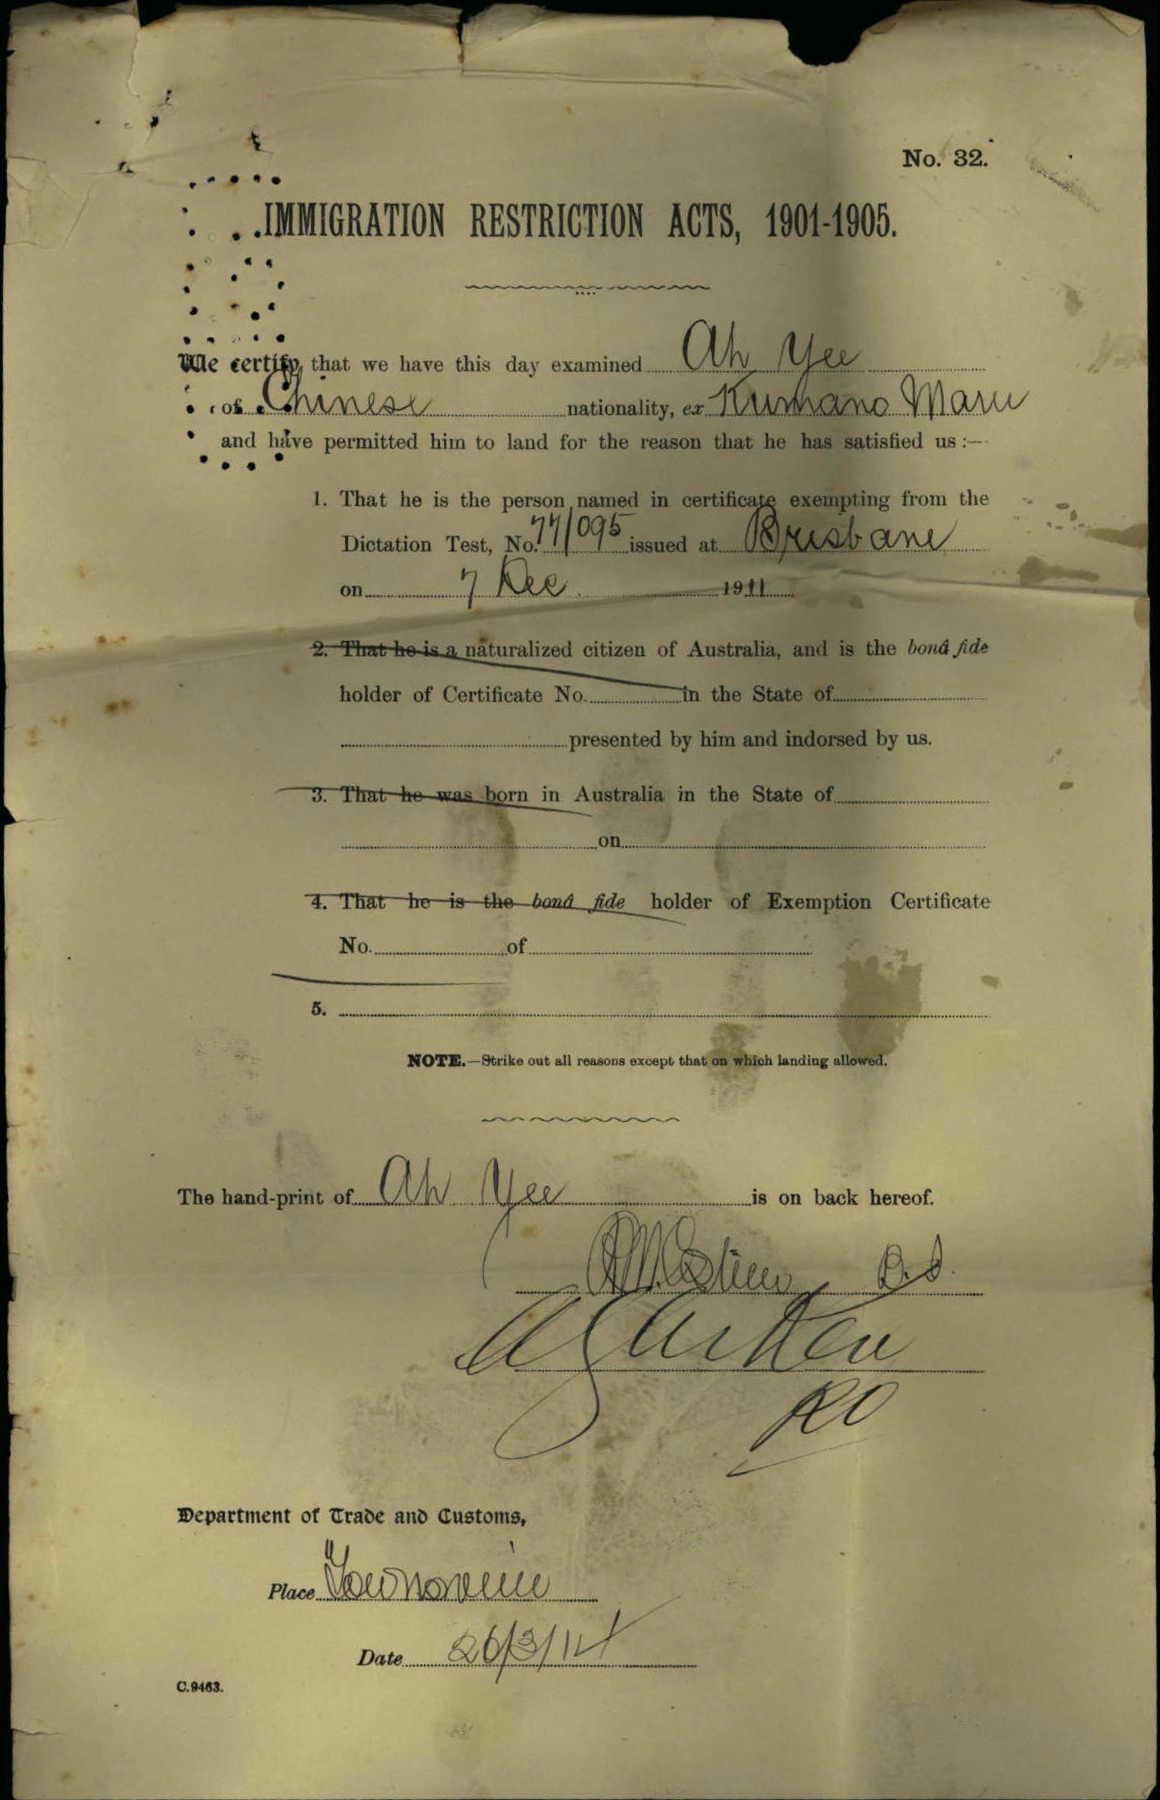 No. 32.
IMMIGRATION RESTRICTION ACTS, 1901-1905.
We certify, that we have this day examined Ah Yee
of Chinese nationality, ex Kumano Maru
and have permitted him to land for the reason that he has satisfied us :—
1. That he is the person named in certificate exempting from the
Dictation Test, No. 77/095 issued at Brisbane
on 7 Dec 1911
2. That he is a naturalized citizen of Australia, and is the bonâ fide
holder of Certificate No. in the State of
presented by him and indorsed by us.
3. That he was born in Australia in the State of
on
4. That he is the bonâ fide holder of Exemption Certificate
No. of
5.
NOTE.—Strike out all reasons except that on which landing allowed.
The hand-print of Ah Yee is on back hereof.
Department of Trade and Customs,
Place Townsville
Date 26/3/14
C.9463.